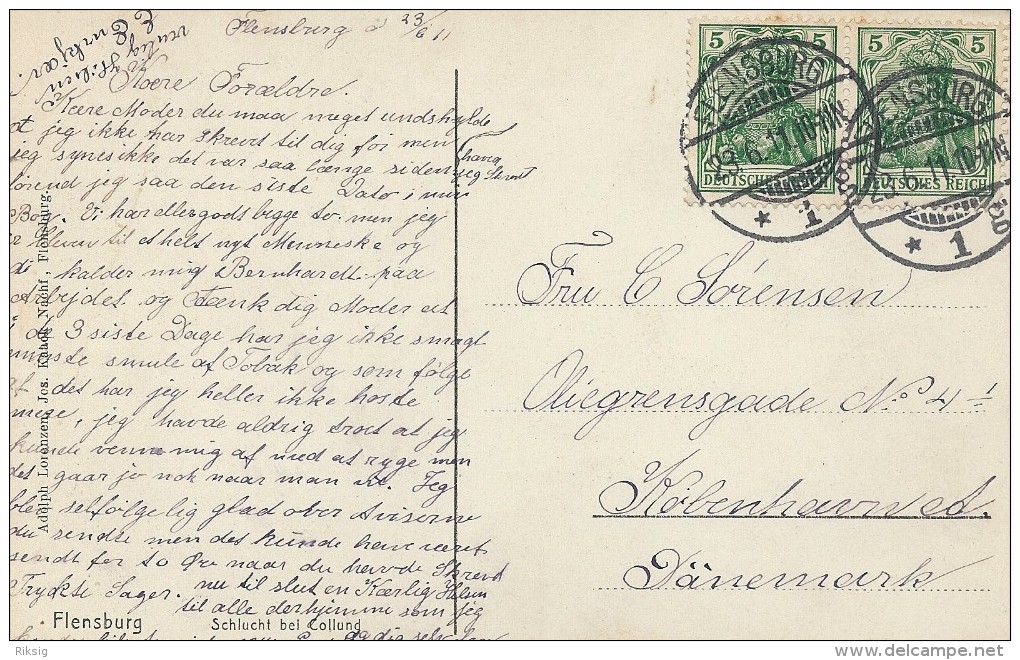 Flensburg d 23/6 11
Kære Forældre.
Kære Moder du maa meget undskylde
at jeg ikke har skrevet til dig før men
jeg synes ikke det var saa længe siden jeg
havde jeg saa den siste Dato i min
Bog. Vi har det godt begge to. men jeg
er bleven til et helt nyt Menneske og
de kalder mig Bernhardt paa
Arbejdet og Tænk dig Moder at
i de 3 siste Dage har jeg ikke smagt
mindste smule af Tobak og som følge
af det har jeg heller ikke hoste
mere, jeg havde aldrig troet at jeg
kunde venne mig af med at ryge men
det gaar jo nok naar man vil. Jeg
blev selfølgelig glad over Aviserne
du sendte men det kunde have været
sendt for to Øre naar du havde Skrevet
Tryckte Sager. nu til slut en Kærlig Hilsen
til alle derhjemme som jeg
Adolph Lorenzen, Jos. Knack Nachf., Flensburg.
Flensburg Schlucht bei Collund
5 5
DEUTSCHES REICH
5 5
DEUTSCHES REICH
FLENSBURG
23.6.11.10-11N.
* 1
FLENSBURG
23.6.11.10-11N.
* 1
Fru C Sørensen
Oliegrensgade No 4 1
København
Dänemark
Riksig